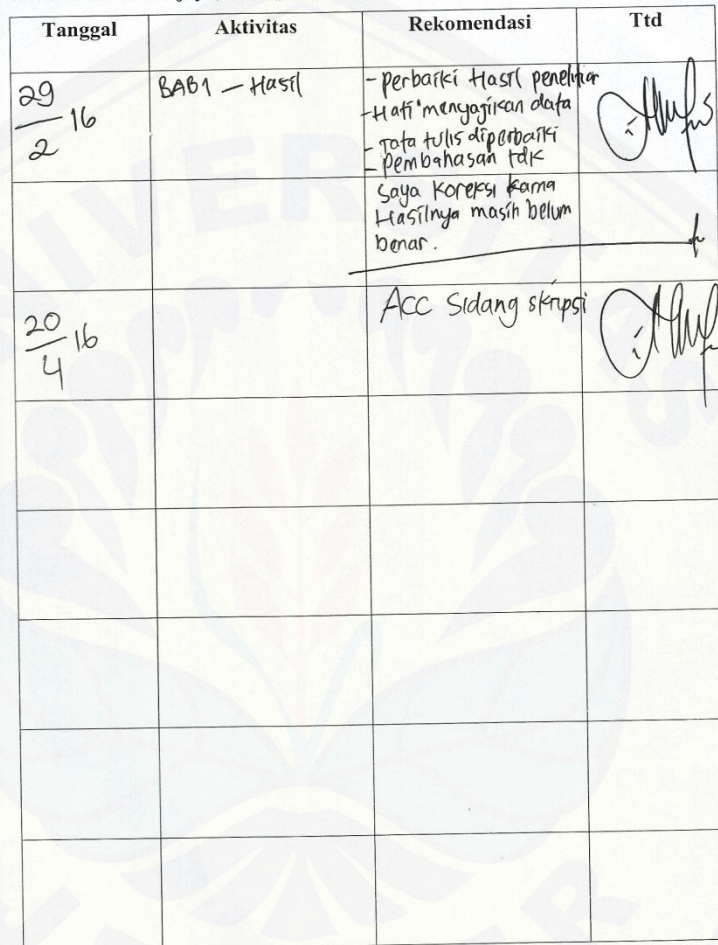 Tanggal Aktivitas Rekomendasi Ttd
29/2 16 BAB1 – Hasil - perbaiki Hasil penelitian
- Hati" menyajikan data
- Tata tulis diperbaiki
- Pembahasan tdk
Saya Koreksi karna
Hasilnya masih belum
benar.
20/4 16 Acc Sidang skripsi
UNIVERSITAS